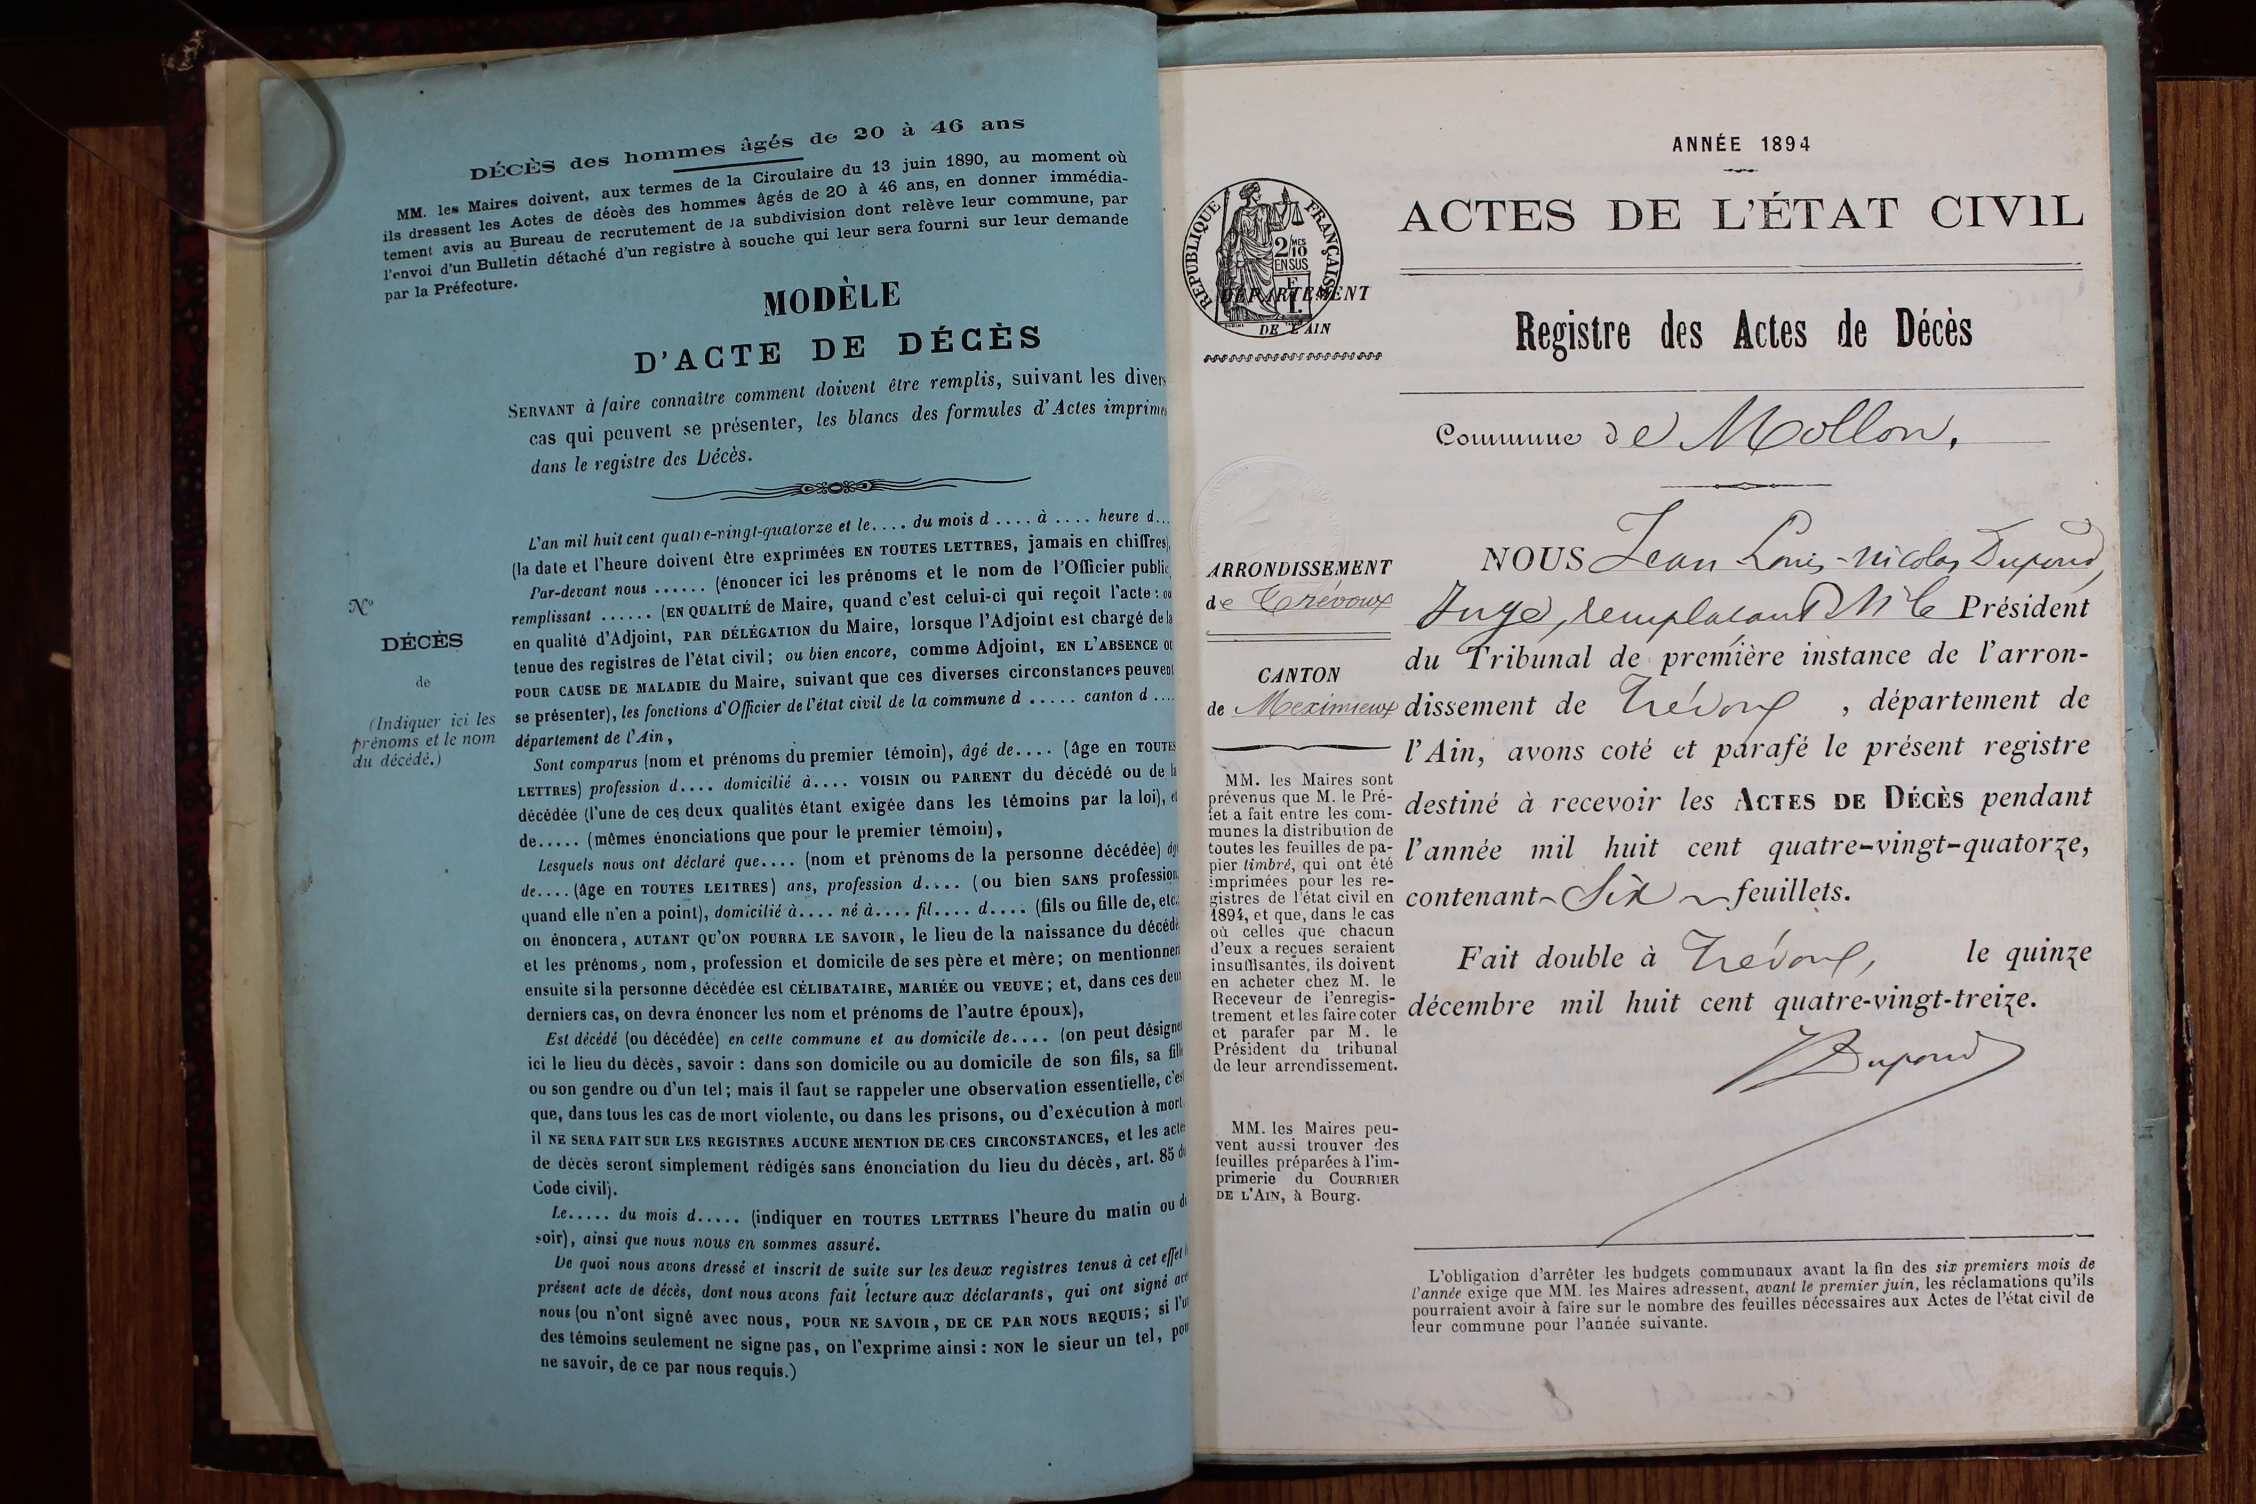 DÉCÈS des hommes âgés de 20 à 46 ans
MM. les Maires doivent, aux termes de la Circulaire du 13 juin 1890, au moment où
ils dressent les Actes de décès des hommes âgés de 20 à 46 ans, en donner immédia-
tement avis au Bureau de recrutement de la subdivision dont relève leur commune, par
l'envoi d'un Bulletin détaché d'un registre à souche qui leur sera fourni sur leur demande
par la Préfecture.
MODÈLE
D'ACTE DE DÉCÈS
SERVANT à faire connaître comment doivent être remplis, suivant les divers
cas qui peuvent se présenter, les blancs des formules d'Actes imprimés
dans le registre des Décès.
L'an mil huit cent quatre-vingt-quatorze et le.... du mois d .... à .... heure d...
(la date et l'heure doivent être exprimées EN TOUTES LETTRES, jamais en chiffres),
Par-devant nous ...... (énoncer ici les prénoms et le nom de l'Officier public
remplissant ...... (EN QUALITÉ de Maire, quand c'est celui-ci qui reçoit l'acte : ou
en qualité d'Adjoint, PAR DÉLÉGATION du Maire, lorsque l'Adjoint est chargé de la
tenue des registres de l'état civil ; ou bien encore, comme Adjoint, EN L'ABSENCE OU
POUR CAUSE DE MALADIE du Maire, suivant que ces diverses circonstances peuvent
se présenter), les fonctions d'Officier de l'état civil de la commune d ..... canton d ....
département de l'Ain,
No
DÉCÈS
de
(Indiquer ici les
prénoms et le nom
du décédé.)
Sont comparus (nom et prénoms du premier témoin), âgé de.... (âge en TOUTES
LETTRES) profession d.... domicilié à.... VOISIN OU PARENT du décédé ou de la
décédée (l'une de ces deux qualités étant exigée dans les témoins par la loi), et
de..... (mêmes énonciations que pour le premier témoin),
Lesquels nous ont déclaré que.... (nom et prénoms de la personne décédée) âgé
de.... (âge en TOUTES LETTRES) ans, profession d.... (ou bien SANS profession,
quand elle n'en a point), domicilié à.... né à.... fil.... d.... (fils ou fille de, etc.;
on énoncera, AUTANT QU'ON POURRA LE SAVOIR, le lieu de la naissance du décédé
et les prénoms, nom, profession et domicile de ses père et mère; on mentionnera
ensuite si la personne décédée est CÉLIBATAIRE, MARIÉE OU VEUVE; et, dans ces deux
derniers cas, on devra énoncer les nom et prénoms de l'autre époux),
Est décédé (ou décédée) en cette commune et au domicile de.... (on peut désigner
ici le lieu du décès, savoir : dans son domicile ou au domicile de son fils, sa fille
ou son gendre ou d'un tel; mais il faut se rappeler une observation essentielle, c'est
que, dans tous les cas de mort violente, ou dans les prisons, ou d'exécution à mort
il NE SERA FAIT SUR LES REGISTRES AUCUNE MENTION DE CES CIRCONSTANCES, et les actes
de décès seront simplement rédigés sans énonciation du lieu du décès, art. 85 du
Code civil).
Le..... du mois d..... (indiquer en TOUTES LETTRES l'heure du matin ou du
soir), ainsi que nous nous en sommes assuré.
De quoi nous avons dressé et inscrit de suite sur les deux registres tenus à cet effet le
présent acte de décès, dont nous avons fait lecture aux déclarants, qui ont signé avec
nous (ou n'ont signé avec nous, POUR NE SAVOIR, DE CE PAR NOUS REQUIS; si l'un
des témoins seulement ne signe pas, on l'exprime ainsi : NON le sieur un tel, pour
ne savoir, de ce par nous requis.)
ANNÉE 1894
ACTES DE L'ÉTAT CIVIL
RÉPUBLIQUE FRANÇAISE
2/10 MES
EN SUS
DÉPARTEMENT
DE L'AIN
Registre des Actes de Décès
Commune de Mollon.
ARRONDISSEMENT
de Trévoux
CANTON
de Meximieux
MM. les Maires sont
prévenus que M. le Pré-
fet a fait entre les com-
munes la distribution de
toutes les feuilles de pa-
pier timbré, qui ont été
imprimées pour les re-
gistres de l'état civil en
1894, et que, dans le cas
où celles que chacun
d'eux a reçues seraient
insuffisantes, ils doivent
en acheter chez M. le
Receveur de l'enregis-
trement et les faire coter
et parafer par M. le
Président du tribunal
de leur arrondissement.
MM. les Maires peu-
vent aussi trouver des
feuilles préparées à l'im-
primerie du COURRIER
DE L'AIN, à Bourg.
NOUS Jean Louis-Nicolas Dupond,
Juge, remplaçant Mr le Président
du Tribunal de première instance de l'arron-
dissement de Trévoux, département de
l'Ain, avons coté et parafé le présent registre
destiné à recevoir les ACTES DE DÉCÈS pendant
l'année mil huit cent quatre-vingt-quatorze,
contenant Six feuillets.
Fait double à Trévoux, le quinze
décembre mil huit cent quatre-vingt-treize.
Dupond
L'obligation d'arrêter les budgets communaux avant la fin des six premiers mois de
l'année exige que MM. les Maires adressent, avant le premier juin, les réclamations qu'ils
pourraient avoir à faire sur le nombre des feuilles nécessaires aux Actes de l'état civil de
leur commune pour l'année suivante.